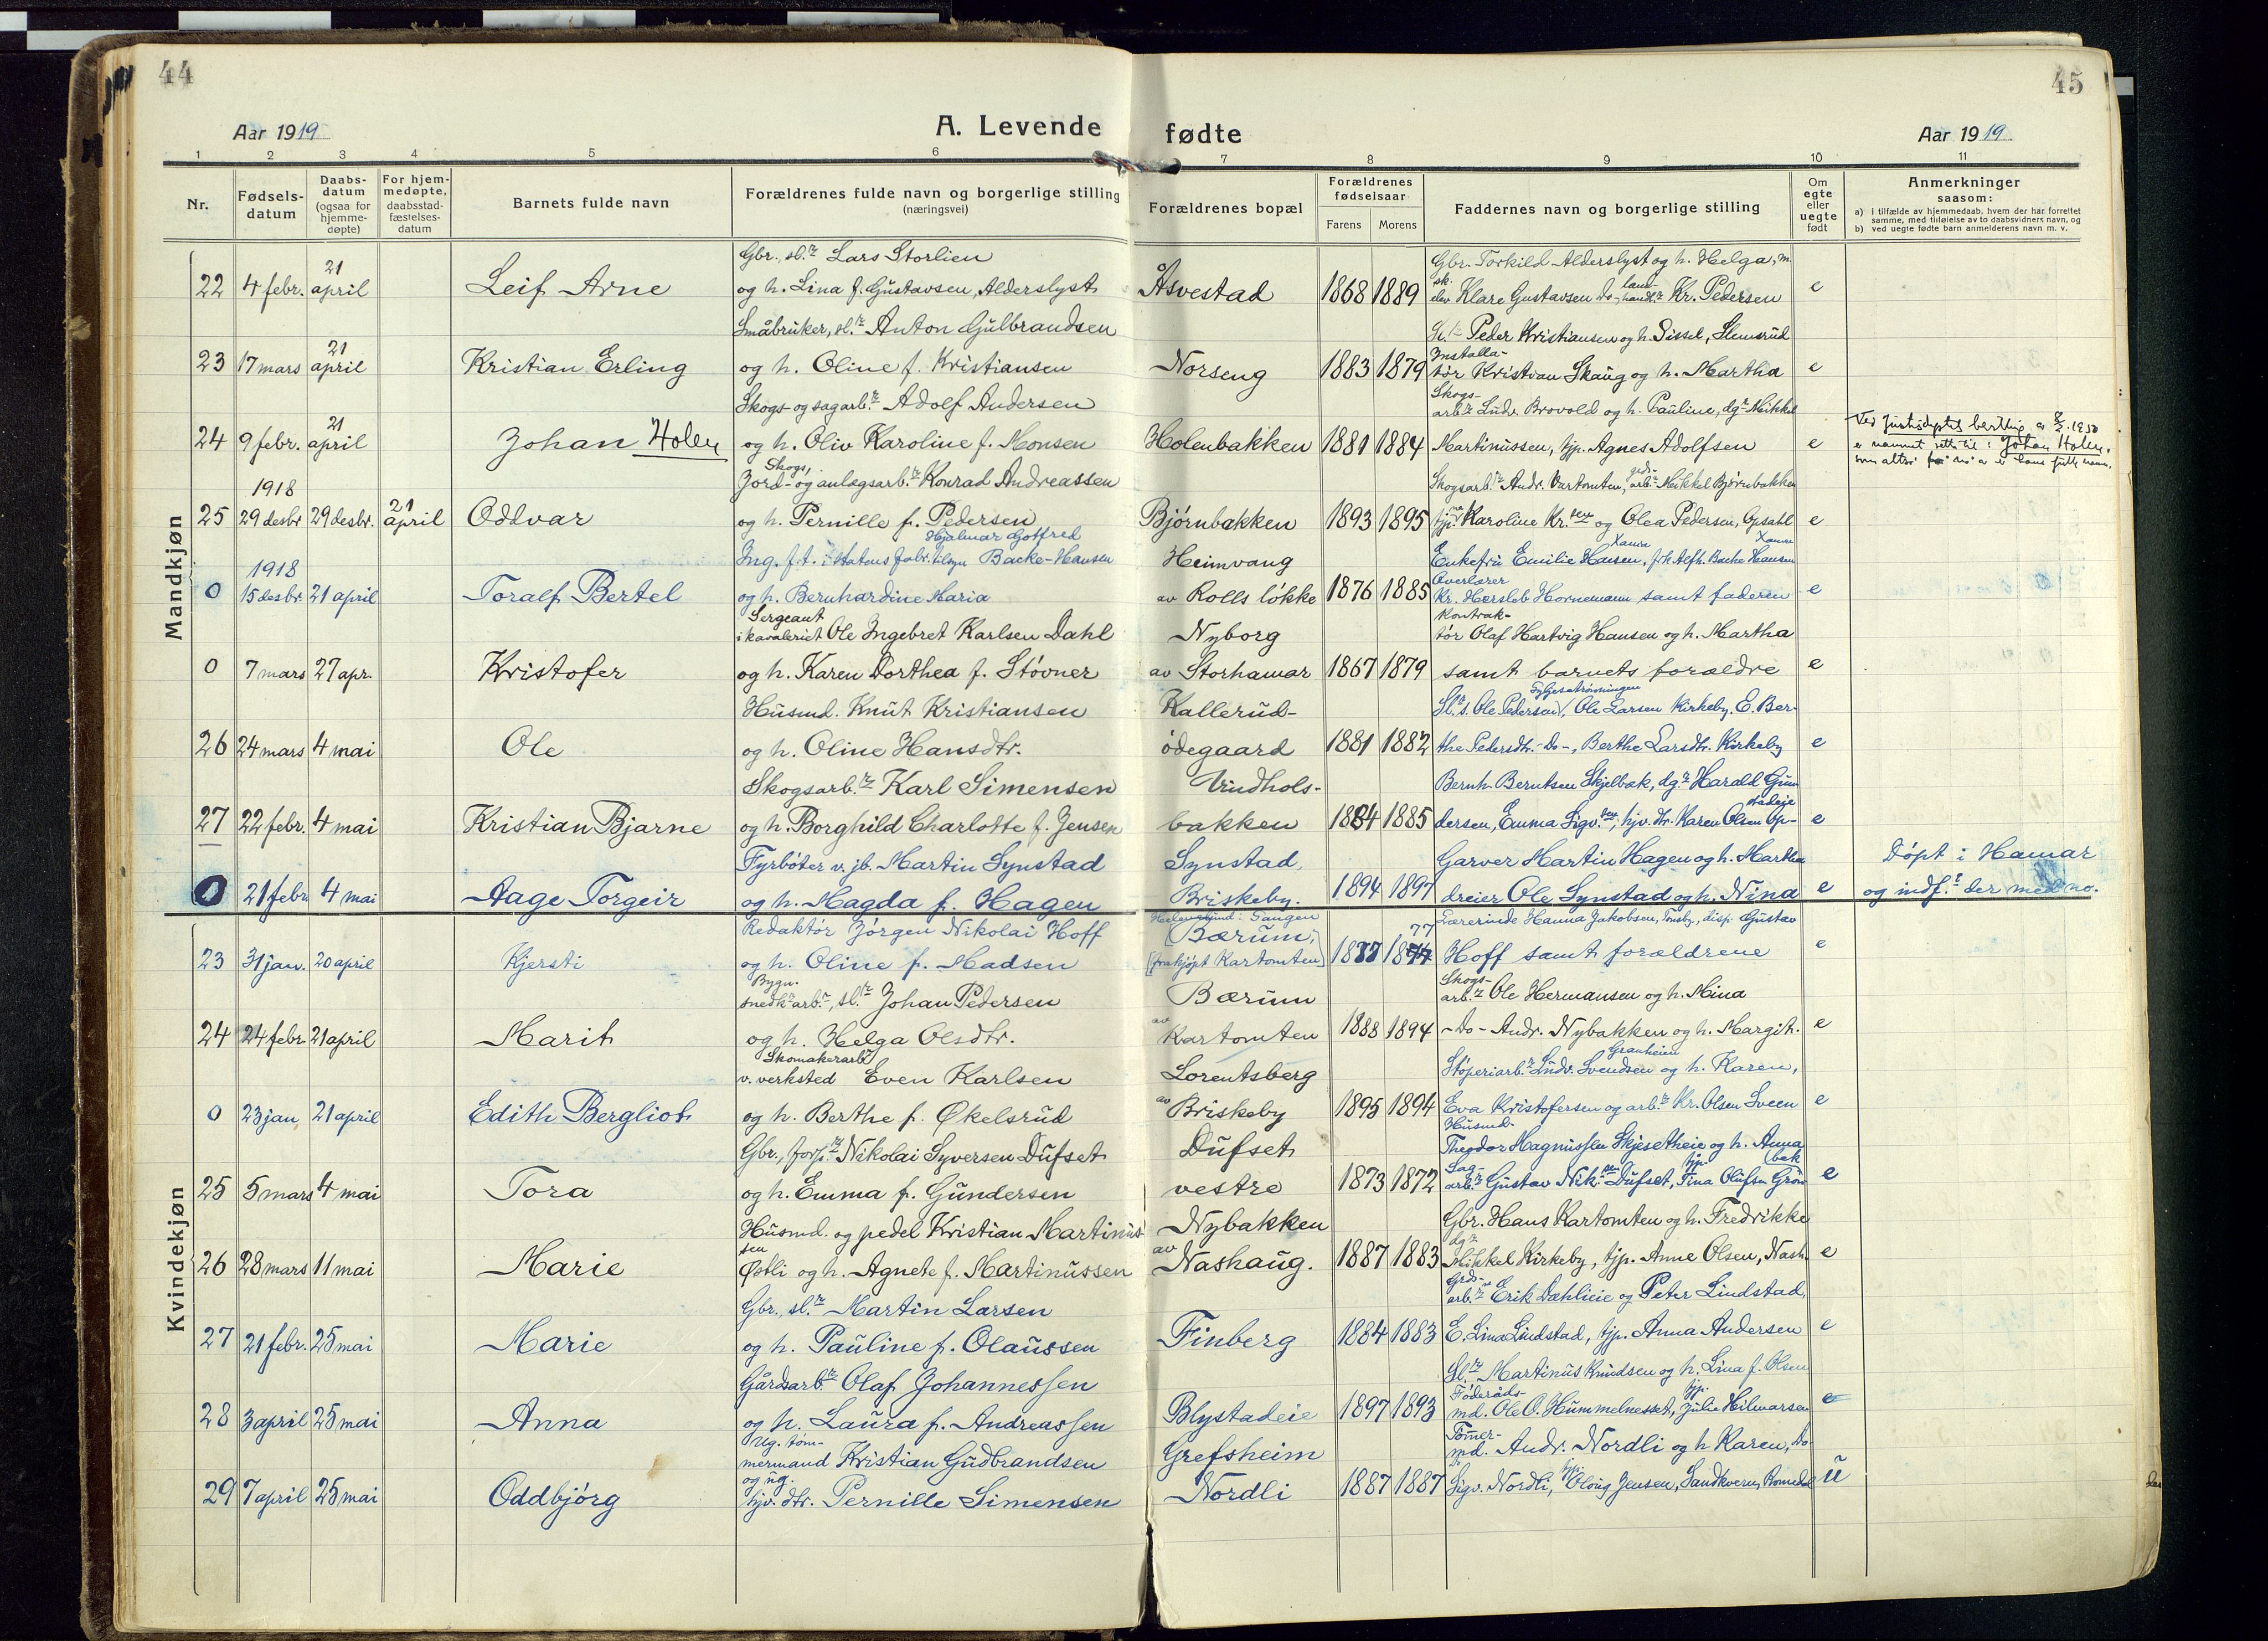 44
Aar 1919
A. Levende
1 2 3 4 5 6
Nr.
Fødsels-
datum
Daabs-
datum
(ogsaa for
hjemme-
døpte)
For hjem-
medøpte,
daabsstad-
fæstelses-
datum
Barnets fulde navn
Forældrenes fulde navn og borgerlige stilling
(næringsvei)
Mandkjøn
Gbr., sl.r Lars Storlien
21
22 4 febr. april Leif Arne og h. Lina f. Gustavsen, Alderslyst
Småbruker, sl.r Anton Gulbrandsen
21
23 17 mars april Kristian Erling og h. Oline f. Kristiansen
Skogs- og sagarb.r Adolf Andersen
21
24 9 febr. april Johan Holen og h. Oliv Karoline f. Monsen
Skogs,
Jord- og anlægsarb.r Konrad Andreassen
1918
21
25 29 desbr 29 desbr. april Oddvar og h. Pernille f. Pedersen
Hjalmar Gotfred
Ing. f.t. i statens fabr. tilsyn Backe-Hansen
1918
0 15 desbr. 21 april Toralf Bertel og h. Bernhardine Maria
Sergeant
i kavaleriet Ole Ingebret Karlsen Dahl
0 7 mars 27 apr. Kristofer og h. Karen Dorthea f. Støvner
Husmd. Knut Kristiansen
26 24 mars 4 mai Ole og h. Oline Hansdtr.
Skogsarb.r Karl Simensen
27 22 febr. 4 mai Kristian Bjarne og h. Borghild Charlotte f. Jensen
Fyrbøter v. jb. Martin Synstad
0 21 febr 4 mai Aage Torgeir og h. Magda f. Hagen
Kvindekjøn
Redaktør Jørgen Nikolai Hoff
23 31 jan. 20 april Kjersti og h. Oline f. Madsen
Bygn.
snedk.arb.r, sl.r Johan Pedersen
24 24 febr. 21 april Marit og h. Helga Olsdtr.
Skomakerarb.r
v. verksted Even Karlsen
0 23 jan 21 april Edith Bergliot og h. Berthe f. Økelsrud
Gbr., forp.r Nikolai Syversen Dufset
25 5 mars 4 mai Tora og h. Emma f. Gundersen
Husmd. og pedel Kristian Martinus
sen
26 28 mars 11 mai Marie Østli og h. Agnete f. Martinussen
Gbr., sl.r Martin Larsen
27 21 febr. 25 mai Marie og h. Pauline f. Olaussen
Gårdsarb.r Olaf Johannessen
28 3 april 25 mai Anna og h. Laura f. Andreassen
Ug. tøm-
mermand Kristian Gudbrandsen
og ug.
29 7 april 25 mai Oddbjørg hjv. dtr. Pernille Simensen
45
fødte
Aar 1919
7 8 9 10 11
Forældrenes bopæl
Forældrenes
fødselsaar
Farens Morens
Faddernes navn og borgerlige stilling
Om
egte
eller
uegte
født
Anmerkninger
saasom:
a) i tilfælde av hjemmedaab, hvem der har forrettet
samme, med tilføielse av to daabsvidners navn, og
b) ved uegte fødte barn anmelderens navn m. v.
Gbr. Torkild Alderslyst og h. Helga, m.
Åsvestad 1868 1889 elev Klare Gustavsen Do- land- handl.r Kr. Pedersen e
Sl.r Peder Kristiansen og h. Sissel, Slemsrud
Installa-
Norseng 1883 1879 tør Kristian Skaug og h. Martha e
Skogs-
arb.r Ludv. Brovold og h. Pauline, dg.r Mikkel
Holenbakken 1881 1884 Martinussen, tjp. Agnes Adolfsen e
Ved
e navnet Johan Holen,
Skogsarb.r Andr. Kartomten, arb.r Mikkel Bjørnbakken
Bjørnbakken 1893 1895 Karoline Kr.sen og Olea Pedersen, Opsahl e
Heimvang Enkefru Emilie Hansen, frk Alfh. Backe Hansen
Overlærer
av Rolls løkke 1876 1885 Kr. Hersleb Hornemann samt faderen e
Kontrak-
Nyborg tør Olaf Hartvig Hansen og h. Martha
av Storhamar 1867 1879 samt barnets forældre e
Kallerud- Sl.r s. Ole Pedersen, Ole Larsen Kirkeby. E. Ber-
ødegaard 1881 1882 the Pedersdtr. -Do-, Berthe Larsdtr. Kirkeby e
Vindhols- Bernh. Berntsen Skjelbæk, dg.r Harald Gun
bakken 1884 1885 dersen, Emma Sigv.sen, hjv. dtr. Karen Olsen Op- e
Synstad, Garver Martin Hagen og h. Martha Døpt i Hamar
Briskeby. 1894 1897 dreier Ole Synstad og h. Nina e og indf.t der med no.
Bærum, Lærerinde Hanna Jakobsen, disp. Gustav
77
Kartomten Hoff samt forældrene e
Bærum Skogs-
arb.r Ole Hermansen og h. Mina
av
Kartomten 1888 1894 -Do- Andr. Nybakken og h. Margit. e
Granheim
Lorentsberg Støperiarb.r Ludv. Svendsen og h. Karen,
av Briskeby 1895 1894 Eva Kristofersen og arb.r Kr. Olsen Sveen e
Husmd.
Dufset Theodor Magnussen Skjesetheie og h. Anna
Sag- tjp. bæk
vestre 1873 1872 arb.r Gustav Nik.sen Dufset, Tina Olufsen Grøn e
Nybakken Gbr. Hans Kartomten og h. Fredrikke
av dg.r
Nashaug. 1887 1883 Mikkel Kirkeby, tjp. Anne Olsen, Nash. e
Grds-
arb.r Erik Dæhlieie og Peter Lindstad,
Finberg 1884 1883 E. Lina Lindstad, tjp. Anna Andersen e
Sl.r Martinus Knudsen og h. Lina f. Olsen
Føderåds- tjp.
Blystadeie 1897 1893 md. Ole O. Hummelnesset, Julie Hilmarsen e
Tømer-
Grefsheim md. Andr. Nordli og h. Karen, Do.
Nordli 1887 1887 Sigv. Nordli, tjp. Oloug Jensen, Sandkvern, Romedal u